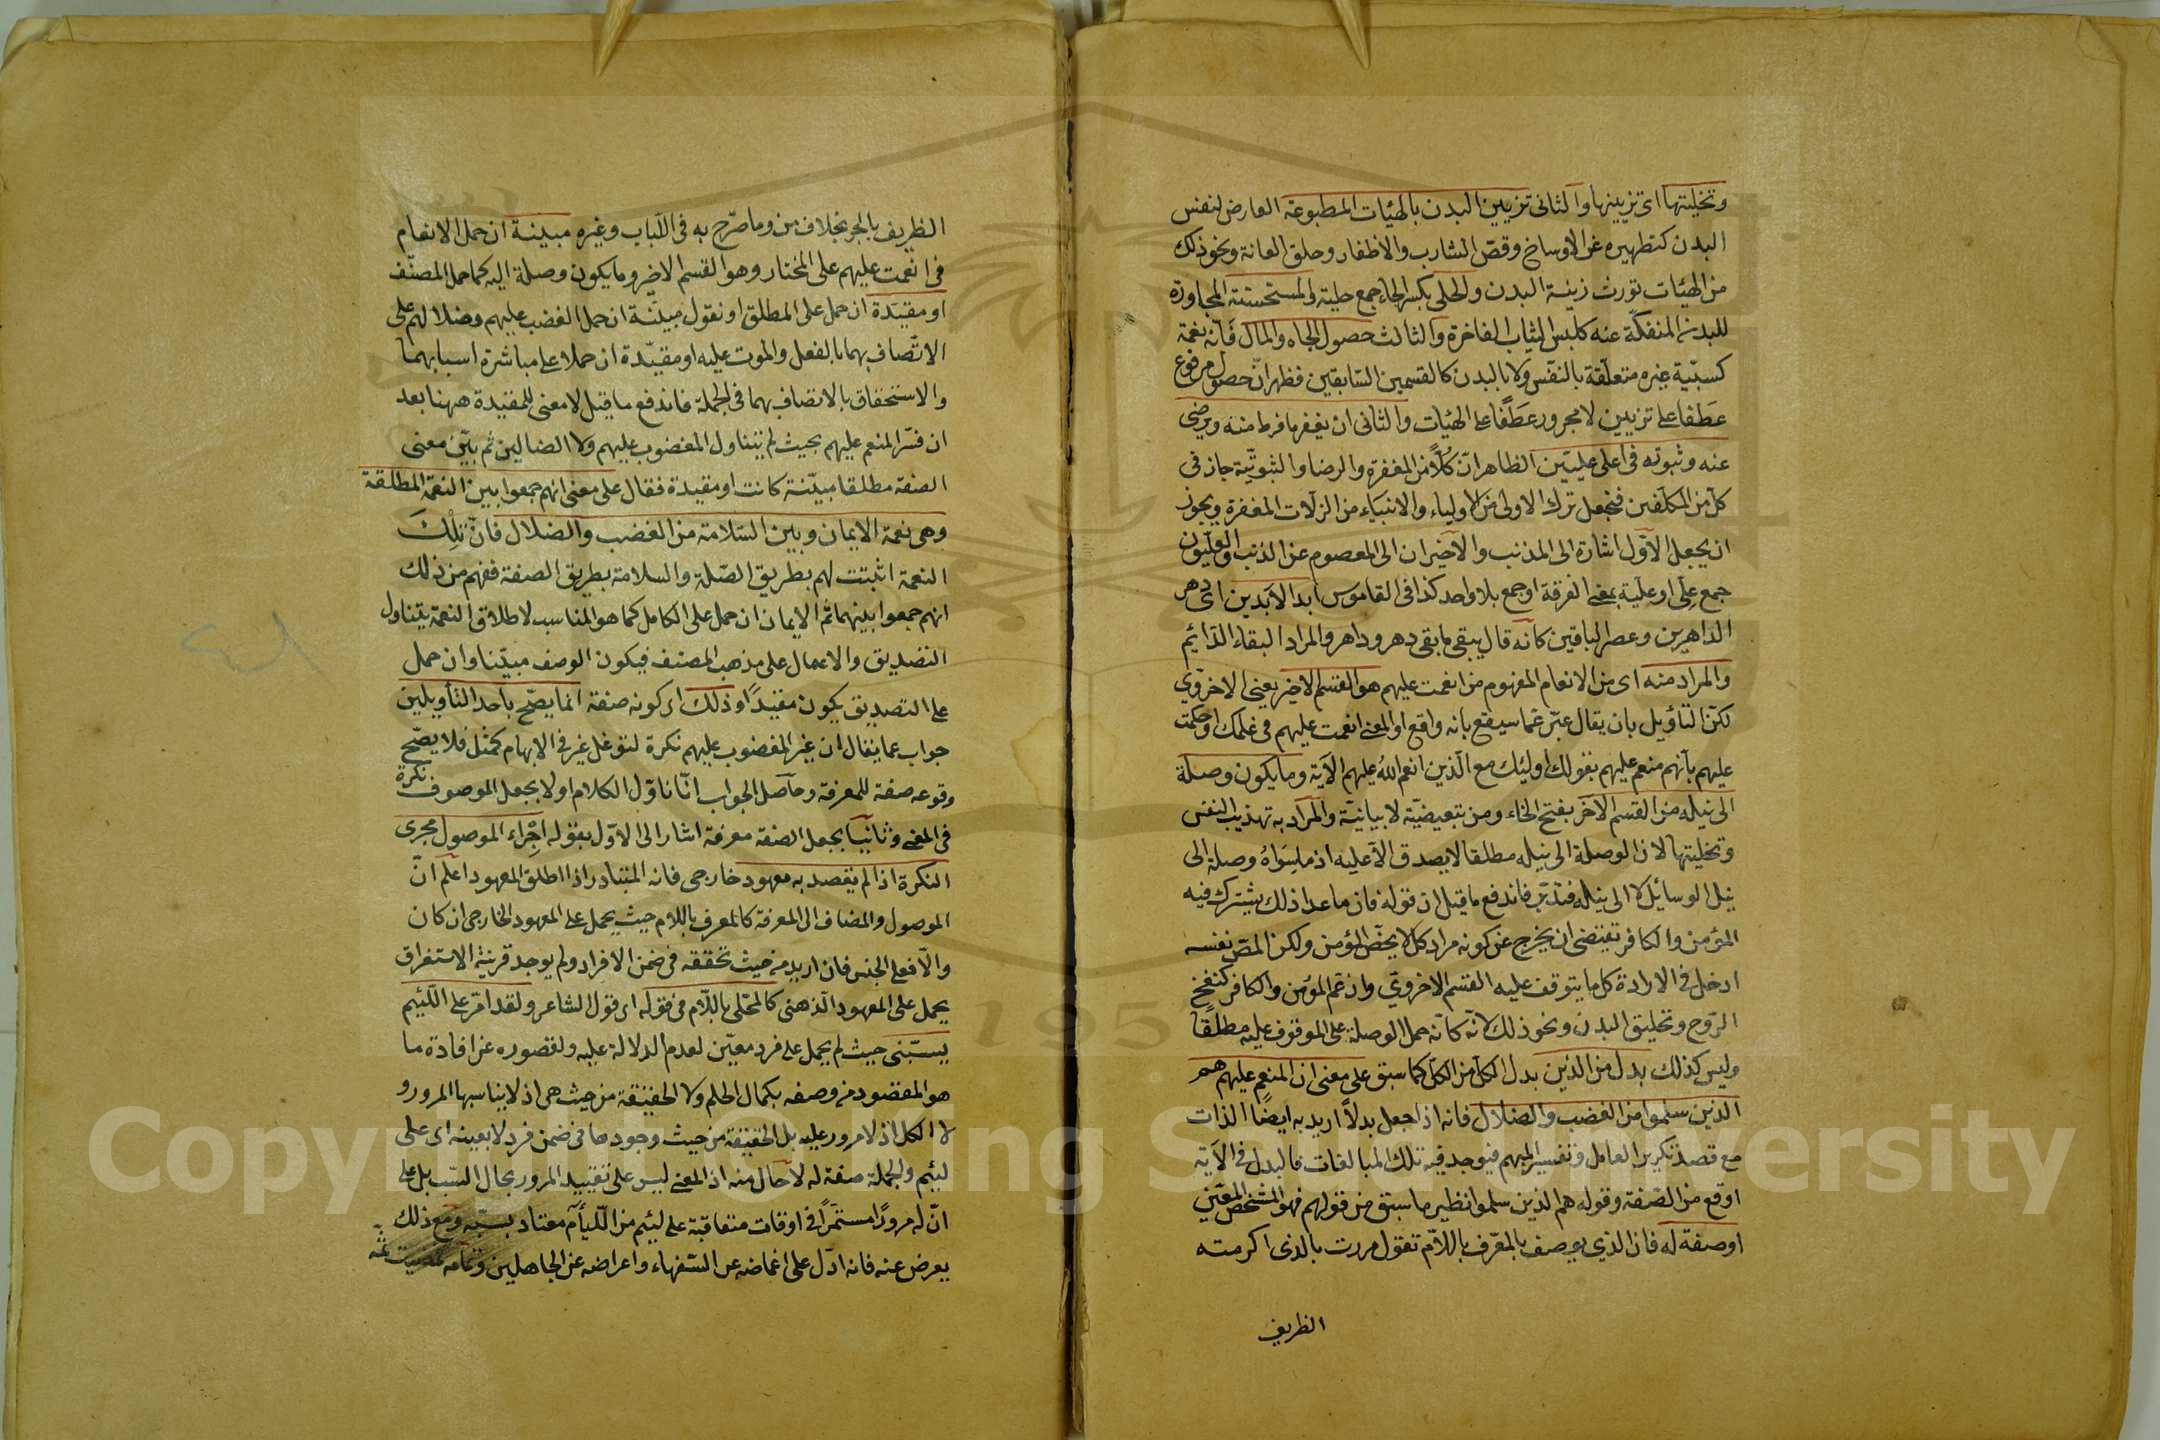 وتخليتها اى تزيينها والثانى تزيين البدن بالهيئات المطبوعة العارض لنفس
البدن كتطهيره عن الاوساخ وقص الشارب والاظفار وحلق العانة ونحو ذلك
من الهيئات تورث زينة البدن والحلى بكسر الحاء جمع حلية والمستحسنة المجاورة
للبدن المنفكة عنه كلبس الثياب الفاخرة والثالث حصول الجاه والمال فانه نعمة
كسبية غيره متعلقة بالنفس ولا بالبدن كالقسمين السابقين فظهر ان حصول مرفوع
عطفا على تزيين لا مجرور عطفا على الهيئات والثانى ان يغفر ما فرط منه ويرضى
عنه وثبوته فى اعلى عليين الظاهر ان كلا من المغفرة والرضا والثبوتية جاز فى
كل من المكلفين فنجعل ترك الاولى من الاولياء والانبياء من الزلات المغفرة ويجوز
ان يجعل الاول اشارة الى المذنب والاخيران الى المعصوم عن الذنب والعليون
جمع على او علية بمعنى الغرفة او جمع بلا واحد كذا فى القاموس ابد الابدين اى دهر
الداهرين وعصر الباقين كانه قال يبقى ما بقى دهر وداهر والمراد البقاء الدائم
والمراد منه اى من الانعام المفهوم من انعمت عليهم هو القسم الاخير يعنى الاخروي
لكن التأويل بان يقال عبر عما سيقع بانه واقع او المعنى انعمت عليهم فى علمك او حكمت
عليهم بانهم منعم عليهم بقولك اولئك مع الذين انعم الله عليهم الآية وما يكون وصلة
الى نيله من القسم الآخر بفتح الخاء ومن تبعيضية لا بيانية والمراد به تهذيب النفس
وتخليتها لان الوصلة الى نيله مطلقا لا يصدق الا عليه اذ ما سواه وصلة الى
نيل الوسائل لا الى نيله فتدبر فاندفع ما قيل ان قوله فان ما عدا ذلك يشترك فيه
المؤمن والكافر تقتضى ان يخرج عن كونه مراد كل لا يخص المؤمن ولكن المص نفسه
ادخل فى الارادة كل ما يتوقف عليه القسم الاخروي وان عم المؤمن والكافر كنفخ
الروح وتخليق البدن ونحو ذلك لانه كانه حمل الوصلة على الموقوف عليه مطلقا
وليس كذلك بدل من الذين بدل الكل من الكل كما سبق على معنى ان المنعم عليهم هم
الذين سلموا من الغضب والضلال فانه اذا جعل بدلا اريد به ايضا الذات
مع قصد تكرير العامل وتفسير المبهم فيوجد فيه تلك المبالغات فالبدل فى الآية
اوقع من الصفة وقوله هم الذين سلموا نظير ما سبق من قولهم فهو المشخص المعين
او صفة له فان الذي يوصف بالمعرف باللام تقول مررت بالذى اكرمته
الظريف
الظريف بالجر بخلاف من وما صرح به فى اللباب وغيره مبينة ان حمل الانعام
فى انعمت عليهم على المختار وهو القسم الاخير وما يكون وصلة اليه كما حمل المصنف
او مقيدة ان حمل على المطلق او نقول مبينة ان حمل الغضب عليهم وضلالهم على
الاتصاف بهما بالفعل والموت عليه او مقيدة ان حملا على مباشرة اسبابهما
والاستحقاق بالاتصاف بهما فى الجملة فاندفع ما قيل لا معنى للمقيدة ههنا بعد
ان فسر المنعم عليهم بحيث لم يتناول المغضوب عليهم ولا الضالين ثم بين معنى
الصفة مطلقا مبينة كانت او مقيدة فقال على معنى انهم جمعوا بين النعمة المطلقة
وهى نعمة الايمان وبين السلامة من الغضب والضلال فان تلك
النعمة اثبتت لهم بطريق الصلة والسلامة بطريق الصفة ففهم من ذلك
انهم جمعوا بينهما ثم الايمان ان حمل على الكامل كما هو المناسب لاطلاق النعمة يتناول
التصديق والاعمال على مذهب المصنف فيكون الوصف مبينا وان حمل
على التصديق يكون مقيدا وذلك اى كونه صفة انما يصح باحد التأويلين
جواب عما يقال ان غير المغضوب عليهم نكرة لتوغل غير فى الابهام كمثل فلا يصح
وقوعه صفة للمعرفة وحاصل الجواب انا نأول الكلام اولا بجعل الموصوف نكرة
فى المعنى وثانيا بجعل الصفة معرفة اشار الى الاول بقوله اجراء الموصول مجرى
النكرة اذا لم يقصد به معهود خارجى فانه المتبادر اذا اطلق المعهود اعلم ان
الموصول والمضاف الى المعرفة كالمعرف باللام حيث يحمل على المعهود الخارجى ان كان
والا فعلى الجنس فان اريد من حيث تحققه فى ضمن الافراد ولم يوجد قرينة الاستغراق
يحمل على المعهود الذهنى كالمحلى باللام فى قوله اى قول الشاعر ولقد امر على اللئيم
يسبنى حيث لم يحمل على فرد معين لعدم الدلالة عليه ولقصوره عن افادة ما
هو المقصود من وصفه بكمال الحلم ولا الحقيقة من حيث هى اذ لا يناسبها المرور و
لا الكل اذ لا مرور عليه بل الحقيقة من حيث وجودها فى ضمن فرد لا بعينه اى على
لئيم والجملة صفة له لا حال منه اذ المعنى ليس على تقييد المرور بحال السب بل على
ان له مرورا مستمرا فى اوقات متعاقبة على لئيم من اللئام معتاد بسبه ومع ذلك
يعرض عنه فانه ادل على اغماضه عن السفهاء واعراضه عن الجاهلين وتمامه فمضيت ثمة
Copyright © King Saud University